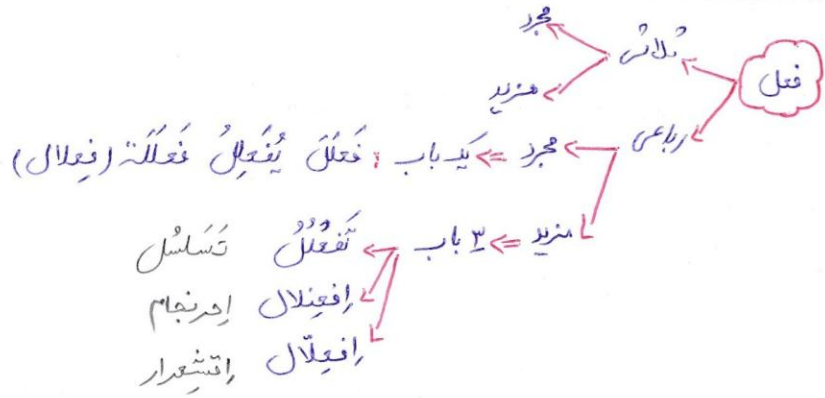 فعل
ثلاثی
مجرد
مزید
رباعی
مجرد => یک باب : فَعلَلَ یُفَعلِلُ فَعلَلَة (فِعلال)
مزید => ۳ باب
تَفَعلُلُ تَسَلسُل
اِفعِنلال اِحرنجام
اِفعِلّال اِقشِعرار